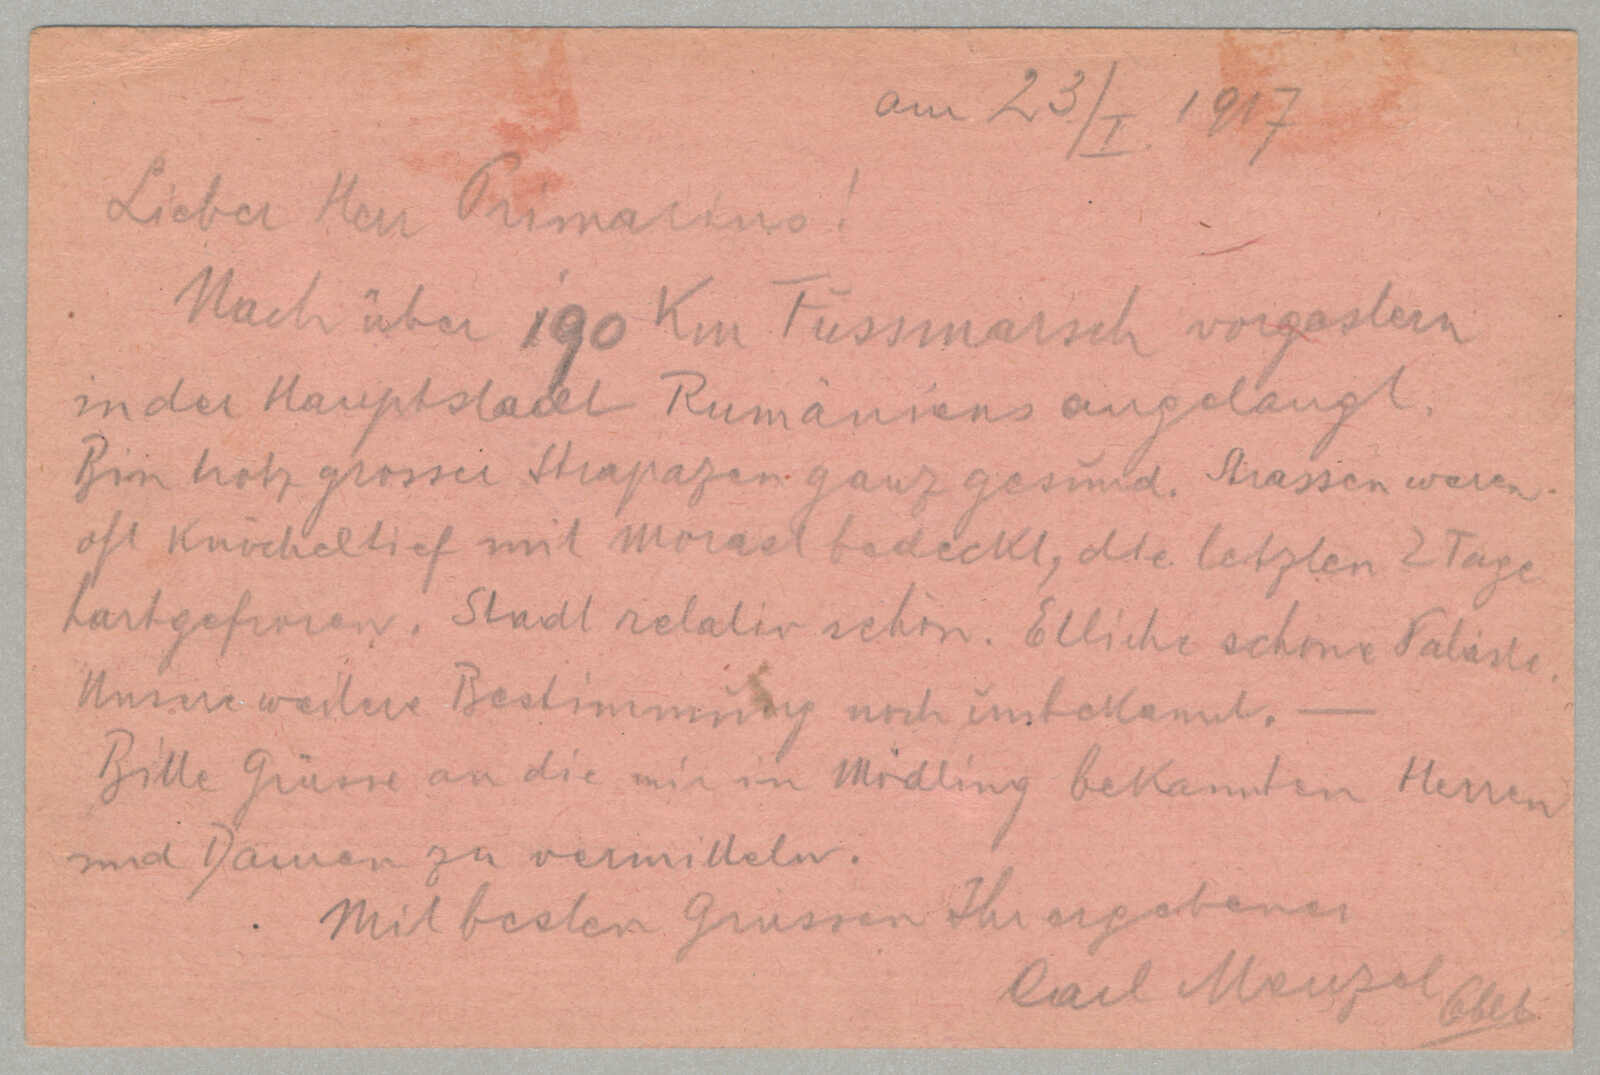 am 23/I. 1917
Lieber Herr Primarius!
Nach über 190 Km Fussmarsch vorgestern
in der Hauptstadt Rumäniens angelangt.
Bin trotz grosser Strapazen ganz gesund. Strassen waren
oft knöcheltief mit Morast bedeckt, die letzten 2 Tage
hartgefroren. Stadt relativ schön. Etliche schöne Paläste.
Unsere weitere Bestimmung noch unbekannt. —
Bitte Grüsse an die mir in Mödling bekannten Herren
und Damen zu vermitteln.
Mit besten Grüssen Ihr ergebener
Carl Menzel